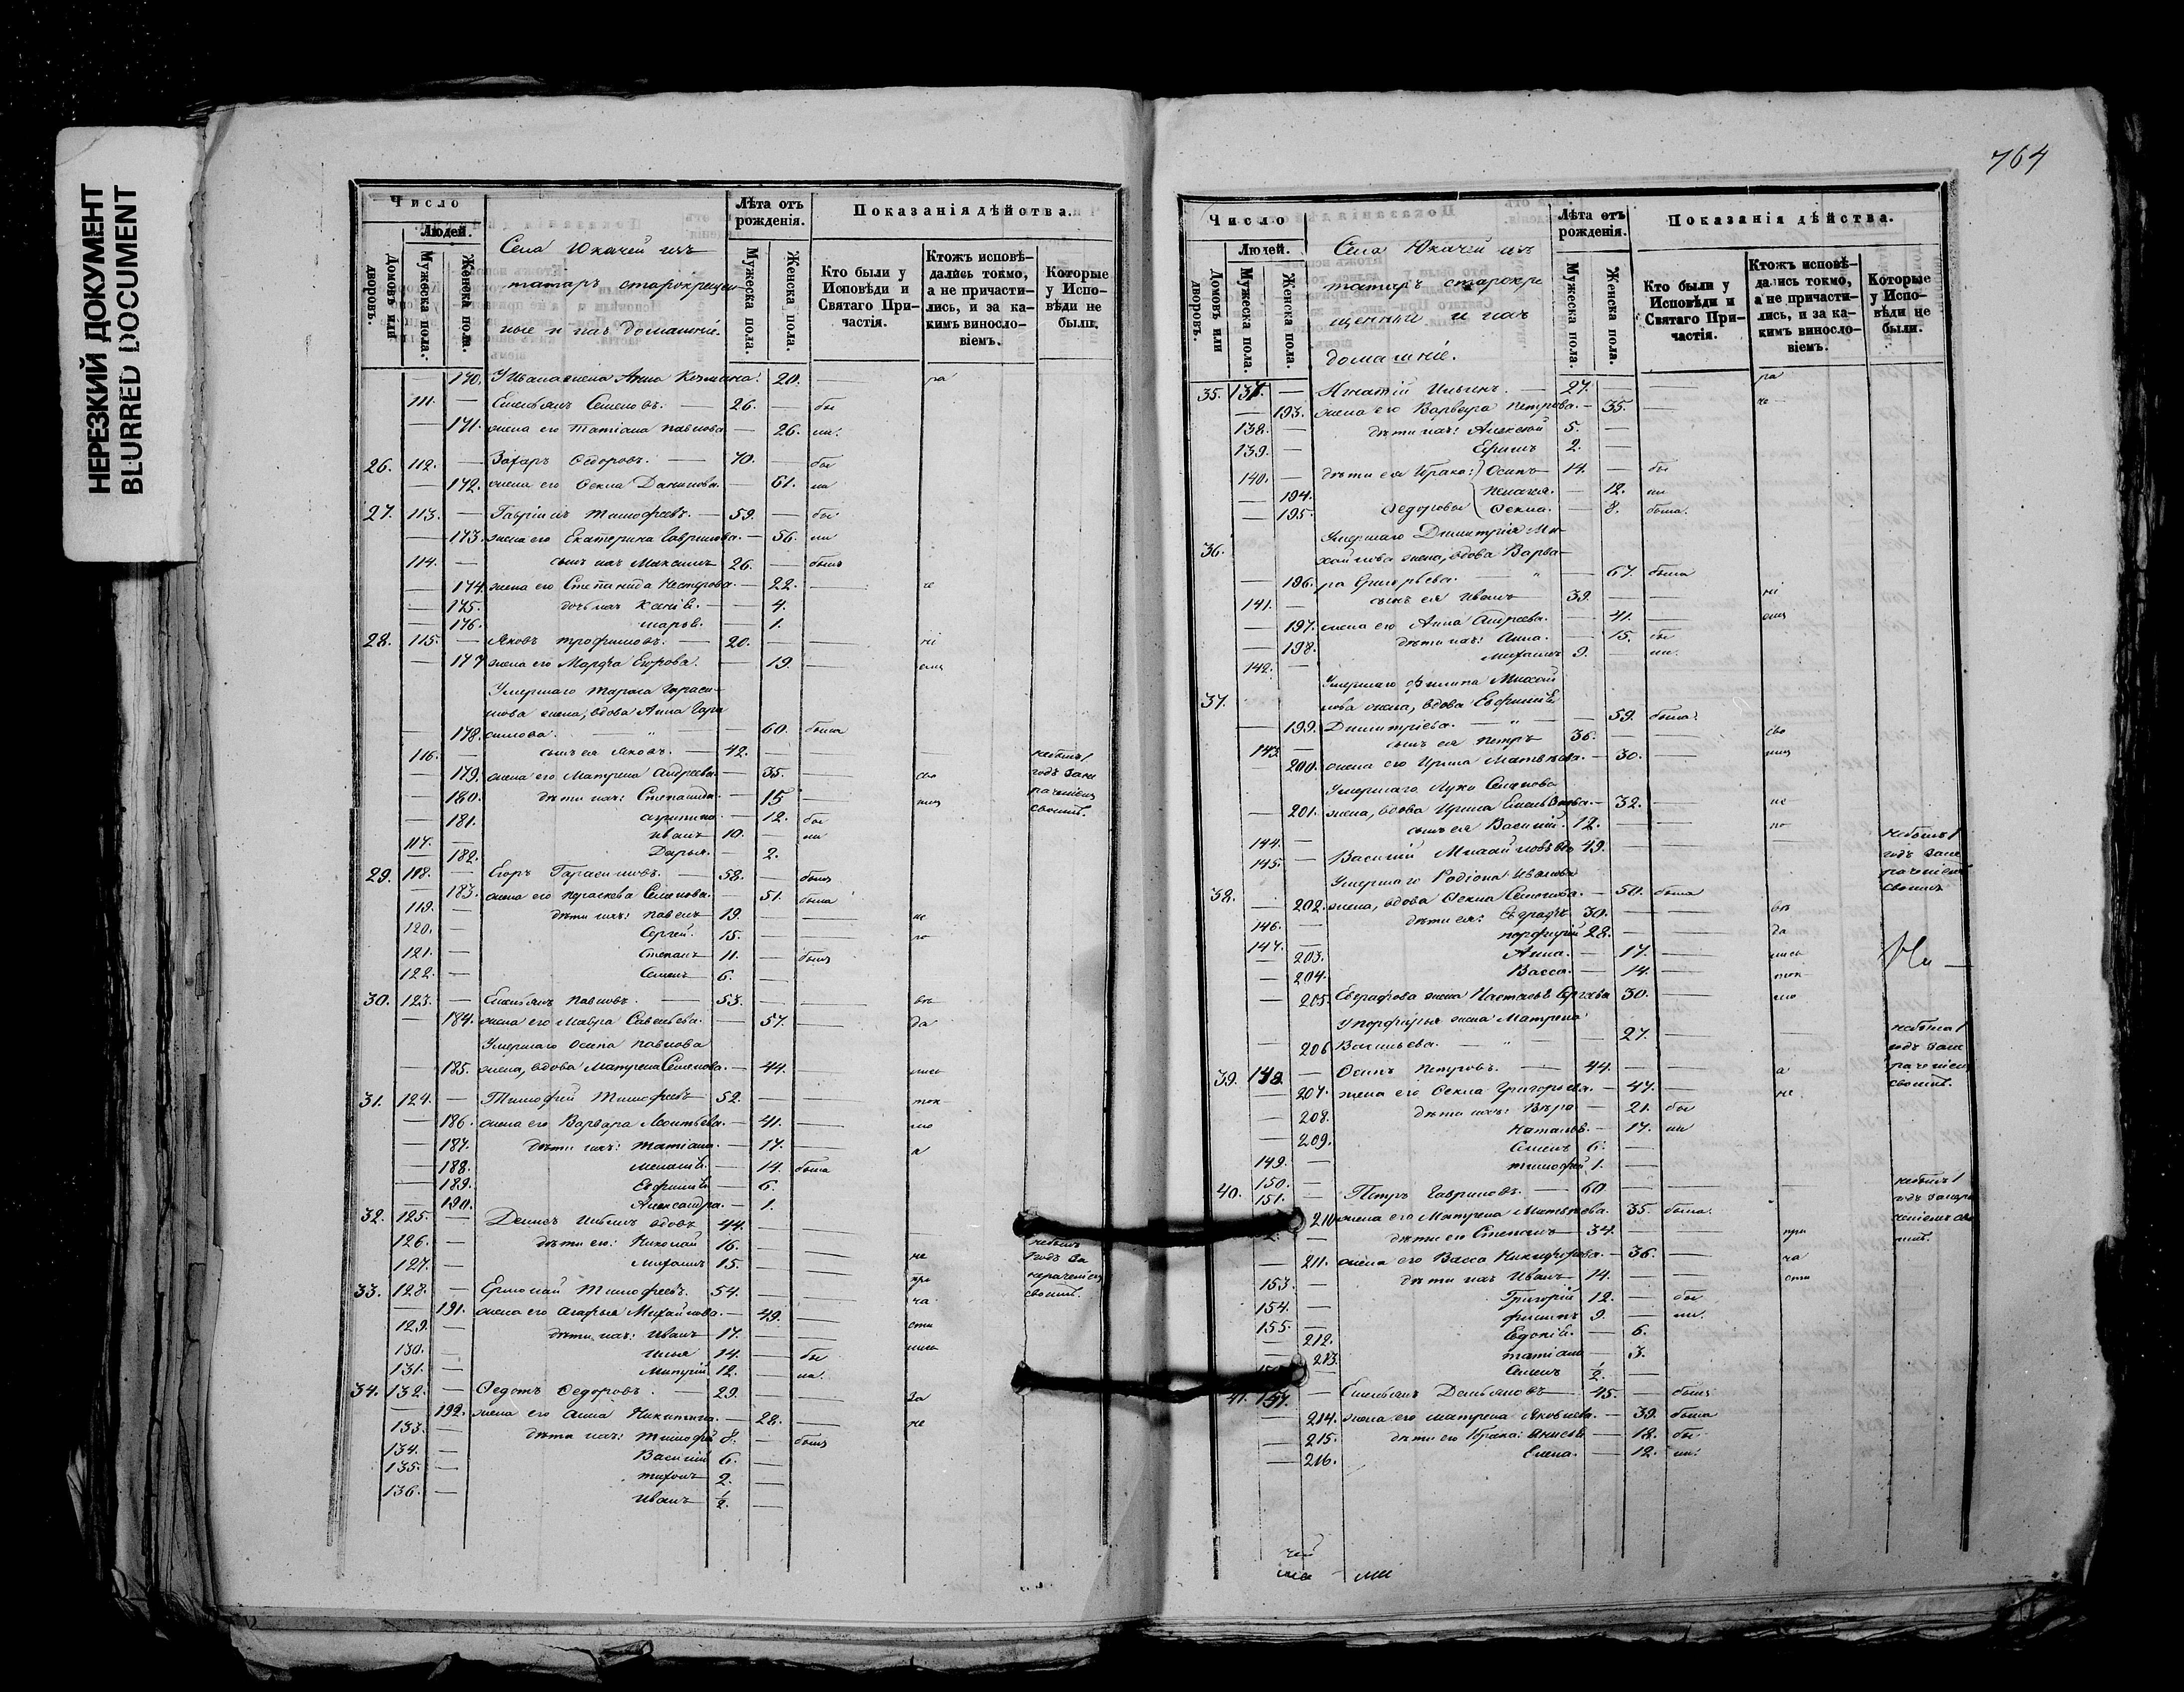 НЕРЕЗКИЙ ДОКУМЕНТ
BLURRED DOCUMENT
Число
Людей.
Домовъ или дворовъ.
Мужеска пола.
Женска пола.
Села Юкачей изъ
татаръ старокрещен-
ные и ихъ домашніе.
Лѣта отъ рожденія.
Мужеска пола.
Женска пола.
Показанія дѣйства.
Кто были у Исповѣди и Святаго Причастія.
Ктожъ исповѣдались токмо, а не причастились, и за какимъ винословіемъ.
Которые у Исповѣди не были.
170. У Ивана жена Анна Козмина. 20. ра
111. Емельянъ Семеновъ. 26. бы
171. жена его Татіана Павлова 26. ли.
26. 112. Захаръ Ѳедоровъ. 70. бы
172. жена его Ѳекла Данилова. 61. ли
27. 113. Гавріилъ Тимофеевъ. 59. бы
173. жена его Екатерина Гаврилова. 56. ли
114. сынъ ихъ Максимъ 26. былъ
174. жена его Степанида Нестерова. 22. че
175. дочь ихъ 4.
176. Марья. 1.
28. 115. Яковъ Трофимовъ. 20. ні
177 жена его Марфа Егорова. 19. емъ
Умершаго Тараса Гераси-
мова жена, вдова Анна Гера
178. симова. 60. была
116. сынъ ея Яковъ. 42. небылъ 1
179. жена его Матрена Андреева. 35. сво годъ зане
180. дѣти ихъ: Степанида. 15 имъ раченіемъ
181. 12. бы своимъ.
117. Иванъ 10. ли
182. Дарья. 2.
29. 118. Егоръ Герасимовъ. 58. былъ
183. жена его Параскева Семенова. 51. была
119. дѣти ихъ: Павелъ 19. не
120. Сергей. 15. по
121. Степанъ 11. былъ
122. Семенъ 6.
30. 123. Емельянъ Павловъ. 53.
184. жена его Мавра Савельева. 57. да
Умершаго Осипа Павлова
185. жена, вдова Матрена Семенова. 44. лись
31. 124. Тимофей Тимофеевъ 52. ток
186. жена его Варвара Леонтьева. 41. мо
187. дѣти ихъ: Татіана. 17. а
188. 14. была
189. Евфимія. 6.
190. Александра. 1.
32. 125. Денисъ Ильинъ вдовъ 44.
126. дѣти его: Николай 16. не небылъ
127. Михаилъ 15. при годъ за
33. 128. Ермолай Тимофеевъ. 54. ча нераченіемъ
191. жена его Агафья Михайлова. 49. сти своимъ.
129. дѣти ихъ: Иванъ 17. лись
130. Илья 14. бы
131. Митрій 12. ли.
34. 132. Ѳедотъ Ѳедоровъ. 29. за
192. жена его Анна Никитина. 28. не
133. дѣти ихъ: Тимофей 8. былъ
134. Василій 6.
135. Тихонъ 2.
136. Иванъ ½.
764
Число
Людей.
Домовъ или дворовъ.
Мужеска пола.
Женска пола.
Села Юкачей изъ
татаръ старокре
щенныи и ихъ
домашніе.
Лѣта отъ рожденія.
Мужеска пола.
Женска пола.
Показанія дѣйства.
Кто были у Исповѣди и Святаго Причастія.
Ктожъ исповѣдались токмо, а не причастились, и за какимъ винословіемъ.
Которые у Исповѣди не были.
35. 137. Игнатій Ильинъ. 27. ра
193. жена его Варвара Петрова. 35. че
138. дѣти ихъ: Алексѣй 5.
139. Ефимъ 2.
140. дѣти ея I брака: Осипъ 14. бы
194. Пелагея. 12. ли
195. Ѳедоровы Ѳекла. 8. была.
36. Умершаго Димитрія Ми-
хайлова жена, вдова Варва-
196. ра Григорьева. 67. была
141. сынъ ея Иванъ 39. ні
197. жена его Анна Андреева. 41. емъ
198. дѣти ихъ: Анна. 15. бы
142. Михаилъ 9. ли.
37. Умершаго Филипа Михай
лова жена, вдова Евфимія
199. Димитріева. 59. была.
143. сынъ ея Петръ 36. сво
200. жена его Ирина Матвѣева. 30. имъ
Умершаго Луки Семенова
201. жена, вдова Ирина Емельянова. 32. не
144. сынъ ея Василій. 12. по
145. Василій Михайловъ 49. небылъ 1
Умершаго Родіона Иванова годъ зане
38. 202. жена, вдова Ѳекла Семенова. 50. была раченіемъ
146. дѣти ея: Евграфъ 30. своимъ
147. Порфирій 28. да
203. Анна. 17. лись
204. Васса. 14. ток
205. Евграфова жена Настасья Сергѣева 30. мо
У Порфирья жена Матрена
206 Васильева. 27. небыла 1 годъ зане раченіемъ своимъ.
39. 148. Осипъ Петровъ. 44. а
207. жена его Ѳекла Григорьева. 47. не
208. дѣти ихъ: Вѣра 21. бы
209. Наталья. 17. ли
149. Семенъ 6.
150. Тимофей 1.
40. 151. Петръ Гавриловъ. 60 небылъ 1
210 жена его Матрена Матвѣева. 35. была. годъ занера
дѣти его Степанъ 34. при ченіемъ сво
211. жена его Васса Никифорова. 36. ча имъ.
153. дѣти ихъ Иванъ 14. сти
154. Григорій 12. бы
155. Филипъ 9. ли.
212. Евдокія. 6.
213. Татіана 3.
Семенъ ½.
41. 157. Емельянъ Демьяновъ 45. былъ
214. жена его Матрена Яковлева. 39. была
215. дѣти его I брака: Анисья 18. бы
216. Елена. 12. ли.